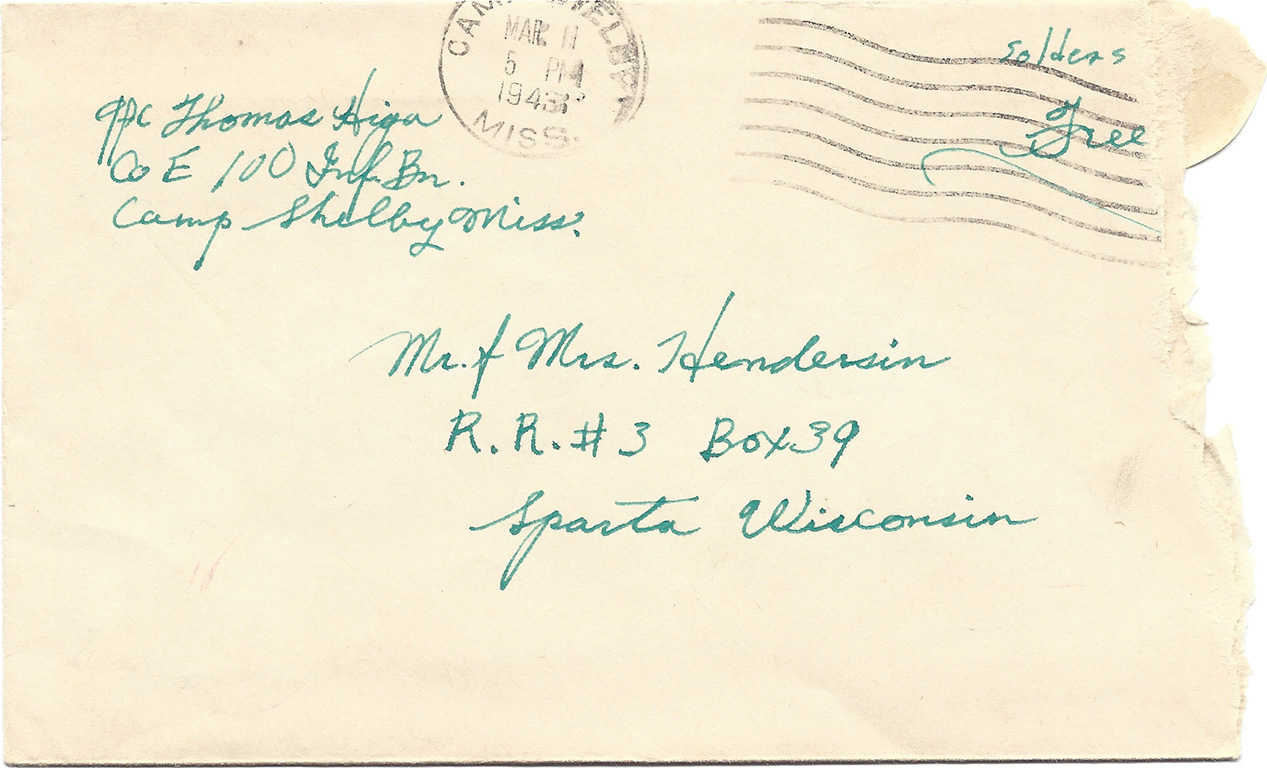 CAMP SHELBY
MAR 11
5 PM
1943
MISS.
Solders
Free
Pfc Thomas Higa
Co E 100 Inf. Bn.
Camp Shelby Miss.
Mr. & Mrs. Hendersin
R. R. #3 Box 39
Sparta Wisconsin